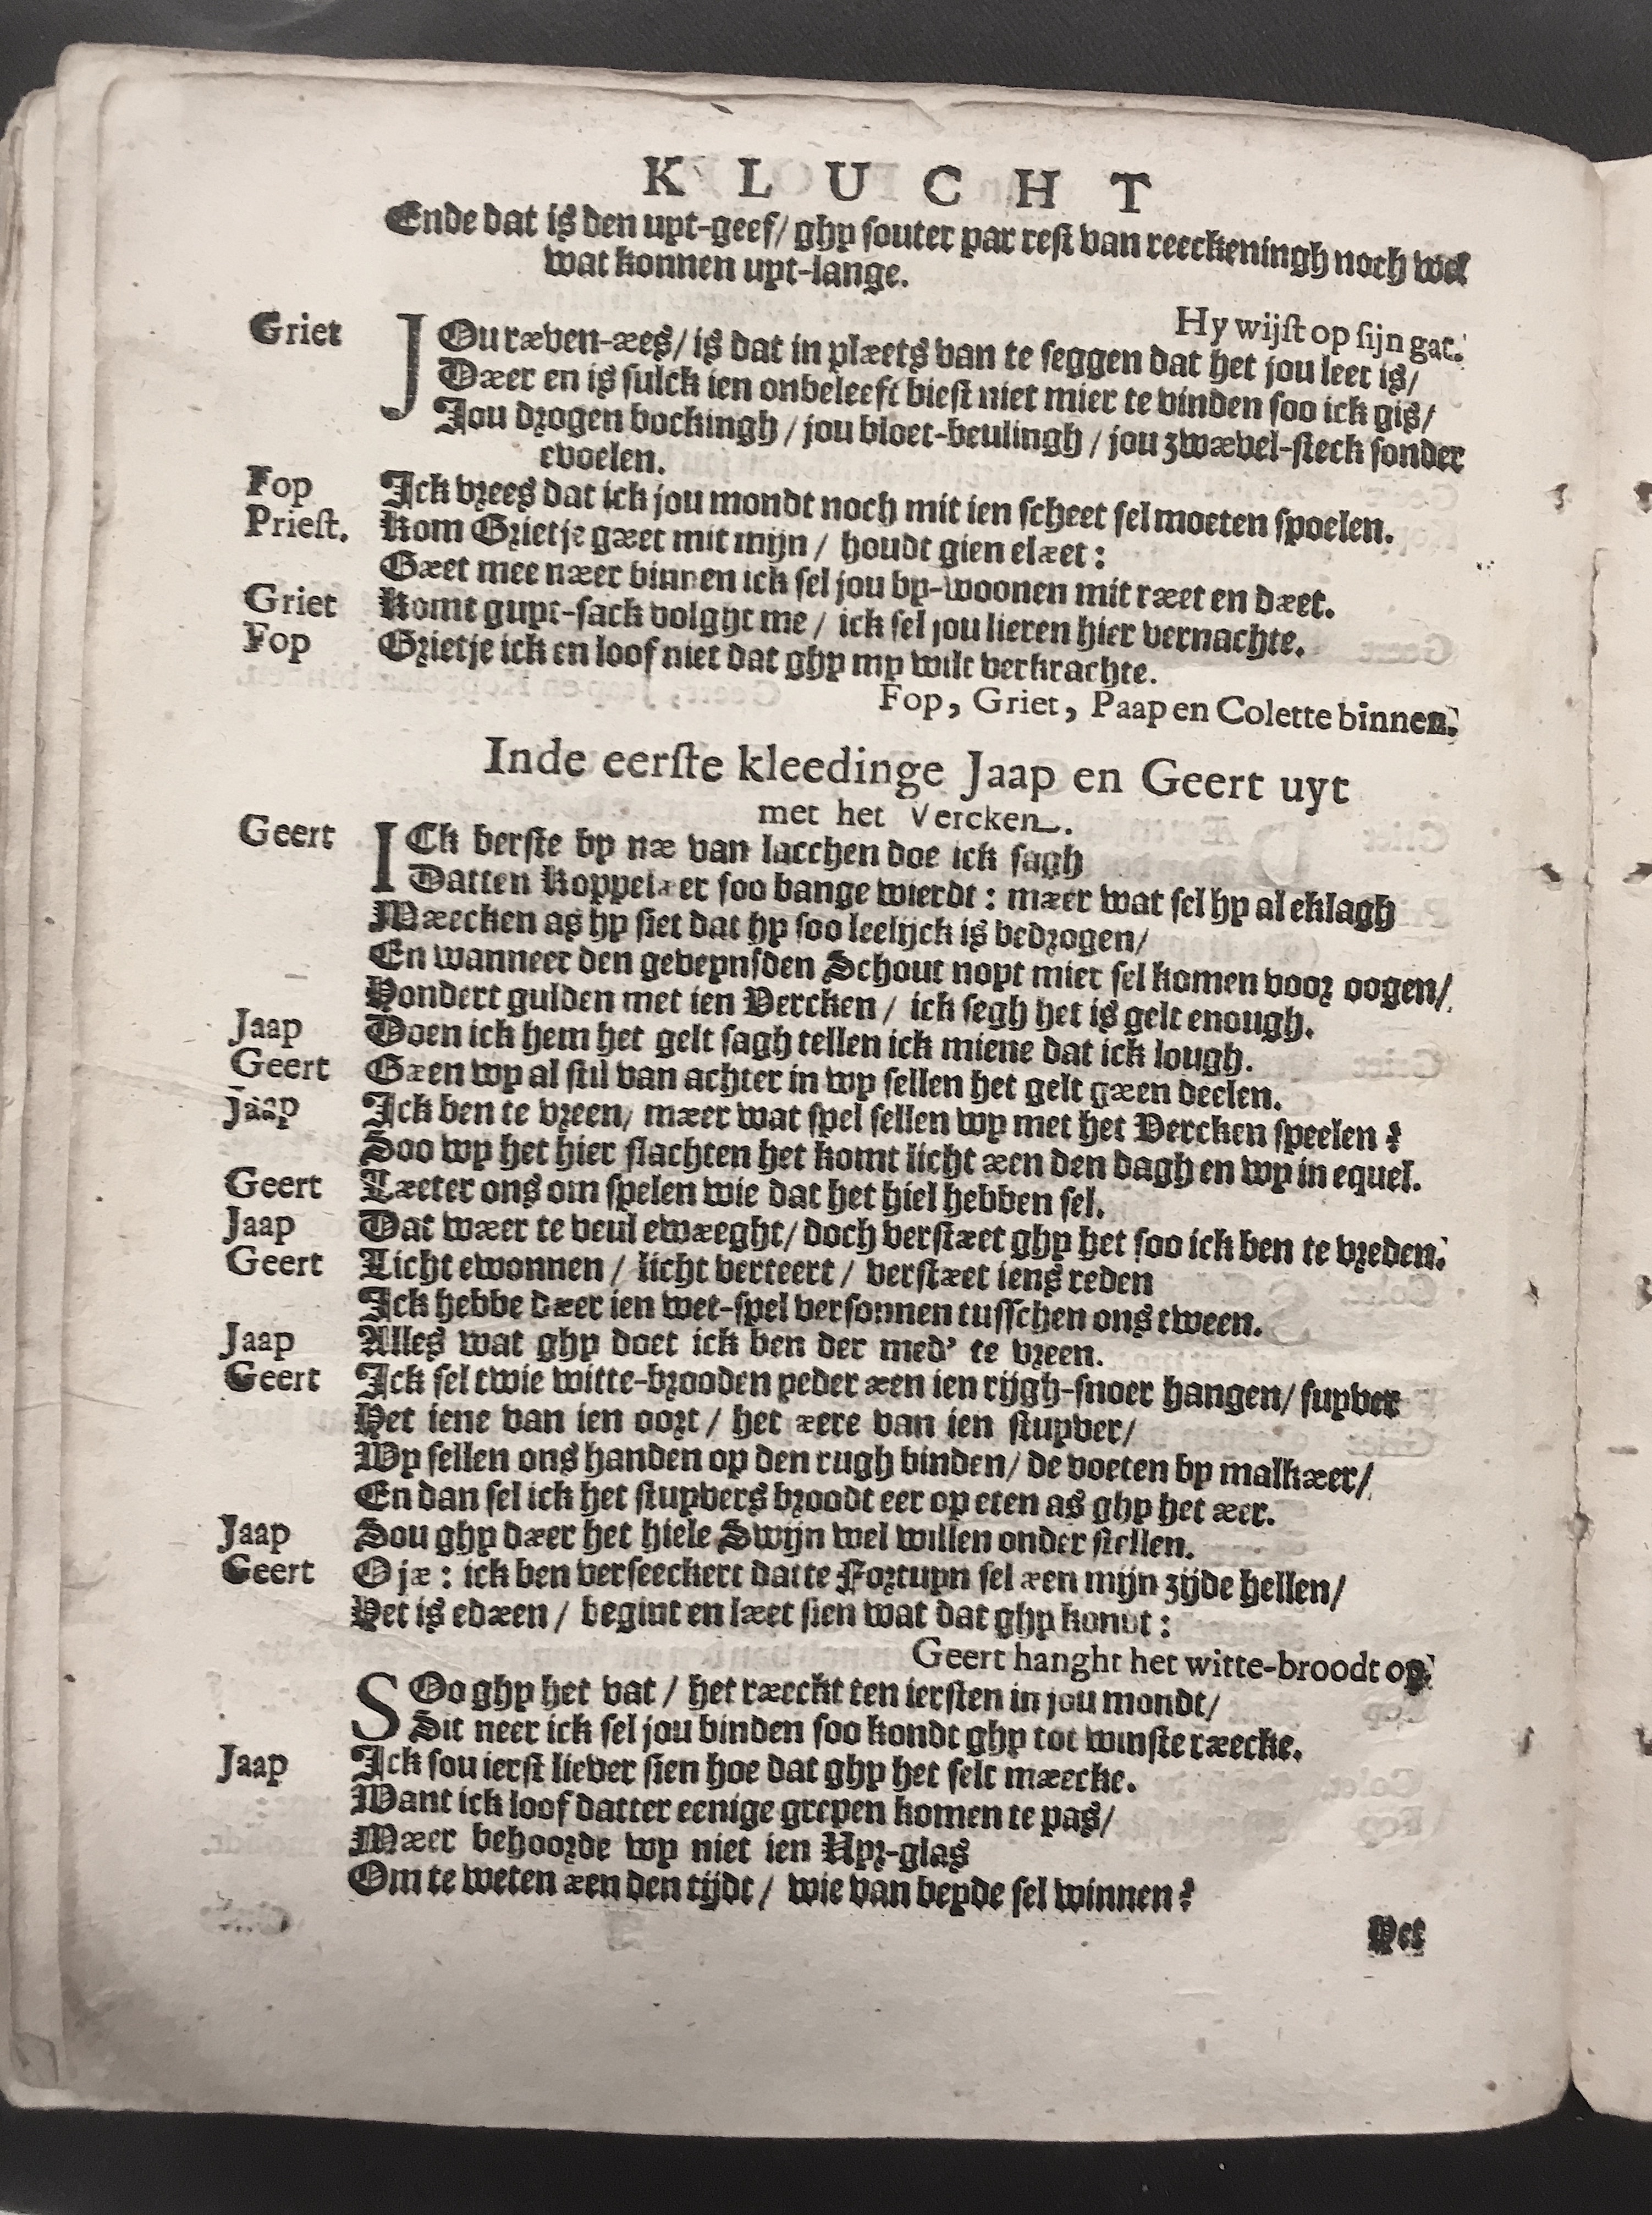 KLUCHT
Ende dat is den uyt-geef/ ghy souter par rest van reeckeningh noch wel
wat konnen uyt-lange.
Hy wijst op sijn gat.
Griet JOu ræven-æes/ is dat in plæets van te seggen dat het jou leet is/
Dæer en is sulck ien onbeleeft biest niet mier te vinden soo ick gis/
Jou drogen bockingh / jou bloet-beulingh / jou zwævel-steck sonder
evoelen.
Fop Ick vrees dat ick jou mondt noch mit ien scheet sel moeten spoelen.
Priest. Kom Grietje gæet mit mijn / houdt gien elæet :
Gæet mee næer binnen ick sel jou by-woonen mit ræet en dæet.
Griet Komt guyt-sack volght me / ick sel jou lieren hier vernachte.
Fop Grietje ick en loof niet dat ghy my wilt verkrachte.
Fop, Griet, Paap en Colette binnen.
Inde eerste kleedinge Jaap en Geert uyt
met het Vercken.
Geert ICk berste by næ van lacchen doe ick sagh
Datten Koppelæer soo bange wierdt : mæer wat sel hy al eklagh
Mæecken as hy siet dat hy soo leelijck is bedrogen/
En wanneer den geveynsden Schout noyt mier sel komen voor oogen/
Hondert gulden met ien Vercken / ick segh het is gelt enough.
Jaap Doen ick hem het gelt sagh tellen ick miene dat ick lough.
Geert Gæen wy al stil van achter in wy sellen het gelt gæen deelen.
Jaap Ick ben te vreen/ mæer wat spel sellen wy met het Vercken speelen ?
Soo wy het hier slachten het komt licht æen den dagh en wy in equel.
Geert Læeter ons om spelen wie dat het hiel hebben sel.
Jaap Dat wæer te veul ewæeght/ doch verstæet ghy het soo ick ben te vreden.
Geert Licht ewonnen / licht verteert / verstæet iens reden
Ick hebbe dæer ien wet-spel versonnen tusschen ons tween.
Jaap Alles wat ghy doet ick ben der med' te vreen.
Geert Ick sel twie witte-brooden yeder æen ien rijgh-snoer hangen/ suyver
Het iene van ien oort / het ære van ien stuyver/
Wy sellen ons handen op den rugh binden/ de voeten by malkæer/
En dan sel ick het stuyvers broodt eer op eten as ghy het æer.
Jaap Sou ghy dæer het hiele Swijn wel willen onder stellen.
Geert O jæ : ick ben verseeckert datte Fortuyn sel æen mijn zijde hellen/
Het is edæen / begint en læet sien wat dat ghy kondt :
Geert hanght het witte-broodt op.
SOo ghy het vat / het ræeckt ten iersten in jou mondt/
Sit neer ick sel jou binden soo kondt ghy tot winste ræecke.
Jaap Ick sou ierst liever sien hoe dat ghy het selt mæecke.
Want ick loof datter eenige grepen komen te pas/
Mæer behoorde wy niet ien Uyr-glas
Om te weten æen den tijdt / wie van beyde sel winnen ?
Het